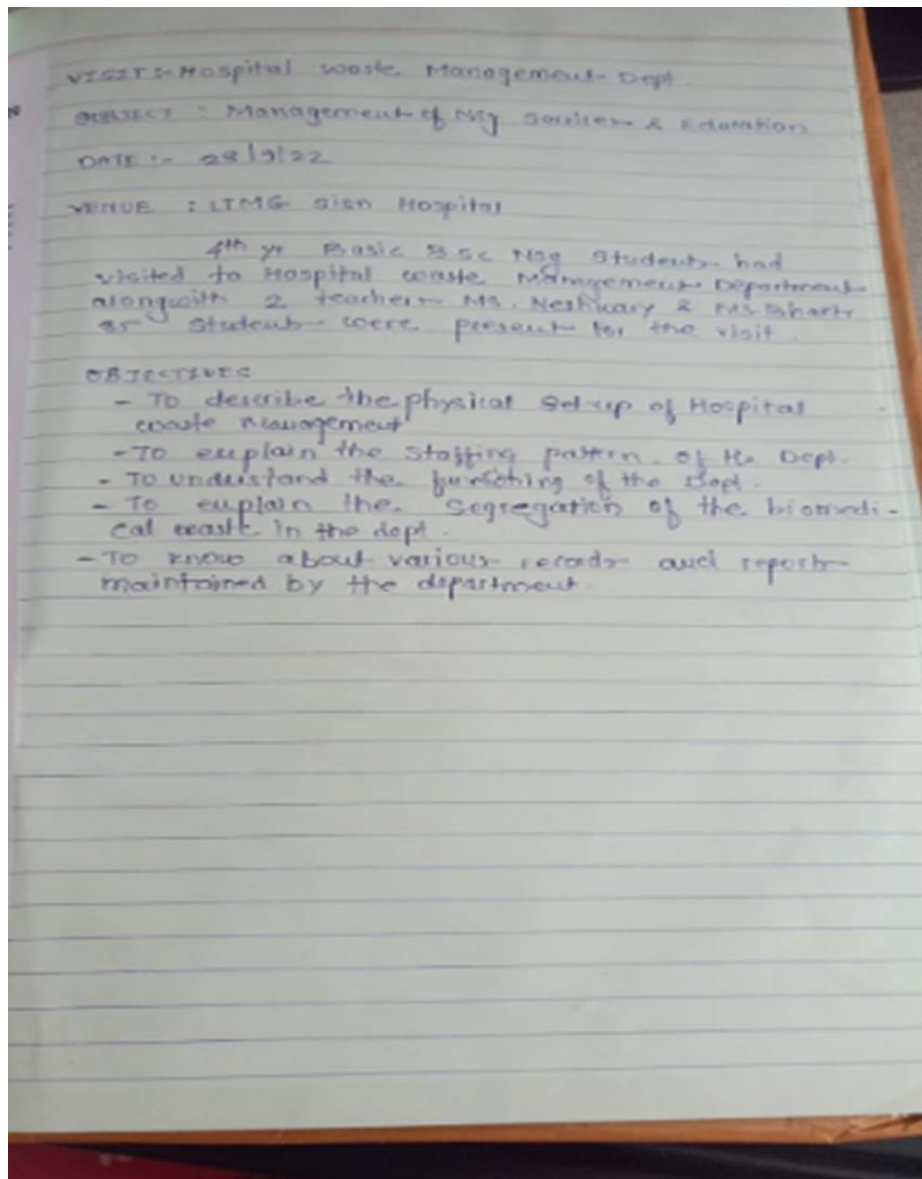 VISIT :- Hospital waste Management Dept.
SUBJECT : Management of Nsg Services & Education
DATE :- 28/9/22
VENUE : LTMG Sion Hospital
4th yr Basic B.Sc Nsg Students had
visited to Hospital waste Management Department
alongwith 2 teachers Ms. & Ms.
students were present for the visit.
OBJECTIVES
- To describe the physical set-up of Hospital
waste management
- To explain the staffing pattern of the Dept.
- To understand the of the Dept.
- To explain the segregation of the biomedi-
cal waste in the dept.
- To know about various records and reports
maintained by the department